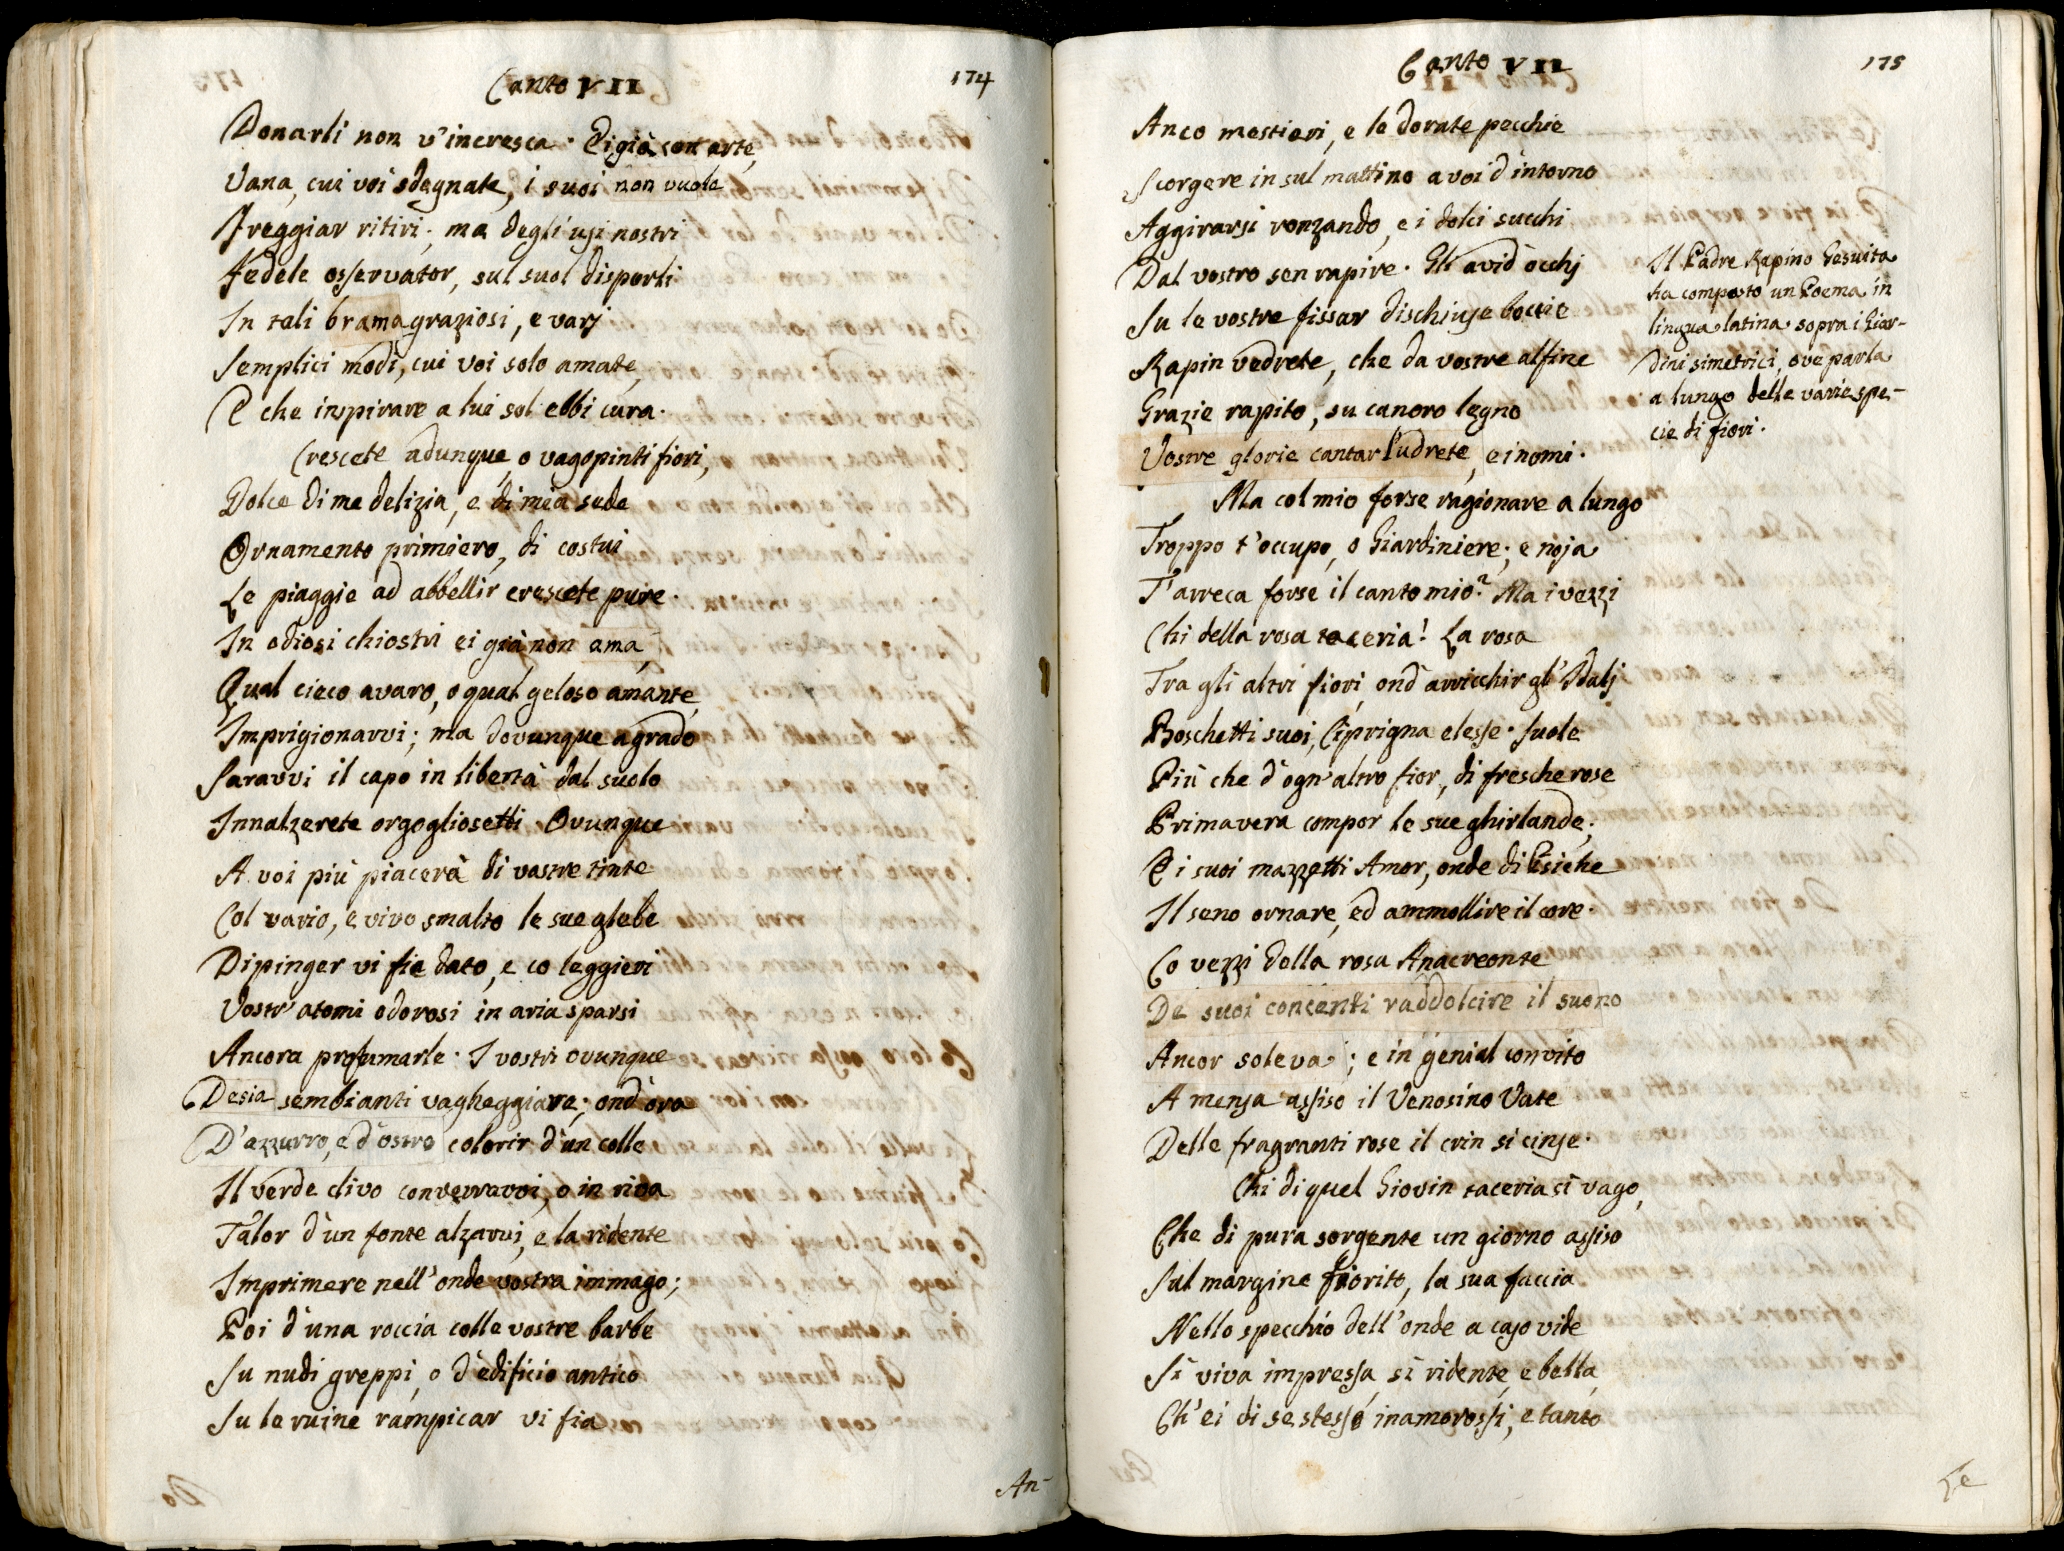 Canto VII
174
Donarli non v'incresca. Ei già con arte,
Vana, cui voi sdegnate, i suoi non vuole
Freggiar ritiri; ma degli usi nostri
Fedele osservator, sul suol disporli
In tali brama graziosi, e varj
Semplici modi, cui voi solo amate,
E che inspirare a lui sol ebbi cura.
Crescete adunque, o vagopinti fiori,
Dolce di me delizia, e di mea sede
Ornamento primiero, di costui
Le piaggie ad abbellir crescete pure.
In odiosi chiostri ei già non ama,
Qual cieco avaro, o qual geloso amante,
Imprigionarvi; ma dovunque a grado
Saravvi il capo in libertà dal suolo
Innalzerete orgogliosetti. Ovunque
A voi più piacerà di vostre tinte
Col vario, e vivo smalto le sue glebe
Dipinger vi fie dato, e co leggieri
Vostr' atomi odorosi in aria sparsi
Ancora profumarle. I vostri ovunque
Desia sembianti vagheggiare; ond'ora
D'azzurro, e d'ostro colorir d'un colle
Il verde clivo converravvi, o in riva
Talor d'un fonte alzarvi, e la ridente
Imprimere nell'onde vostra immago;
Poi d'una roccia colle vostre barbe
Su nudi greppi, o d'edificio antico
Su le ruine rampicar vi fia
An-
Canto VII
175
Anco mestieri, e le dorate pecchie
Scorgere in sul mattino a voi d'intorno
Aggirarsi ronzando, e i dolci succhi
Dal vostro sen rapire. Gli avid' occhj
Su le vostre fissar dischiuse boccie
Rapin vedrete, che da vostre alfine
Grazie rapito, su canoro legno
Vostre glorie cantar l'udrete, e i nomi.
Il Padre Rapino Gesuita
ha composto un Poema in
lingua latina sopra i Giar-
dini simetrici, ove parla
a lungo delle varie spe-
cie di fiori.
Ma col mio forse ragionare a lungo
Troppo t'occupo, o Giardiniere; e noja
T'arreca forse il canto mio? Ma i vezzi
Chi della rosa taceria! La rosa
Tra gli altri fiori, ond' arricchir gl' Idalj
Boschetti suoi, Ciprigna elesse. Suole
Più che d'ogn' altro fior, di fresche rose
Primavera compor le sue ghirlande;
E i suoi mazzetti Amor, onde di Psiche
Il seno ornare, ed ammollire il core.
Co vezzi della rosa Anacreonte
De suoi concenti raddolcire il suono
Ancor soleva; e in genial convito
A mensa assiso il Venosino Vate
Delle fragranti rose il crin si cinse.
Chi di quel Giovin taceria sì vago,
Che di pura sorgente un giorno assiso
Sul margine fiorito, la sua faccia
Nello specchio dell'onde a caso vide
Sì viva impressa, sì ridente, e bella,
Ch'ei di se stesso inamorossi, e tanto
Le